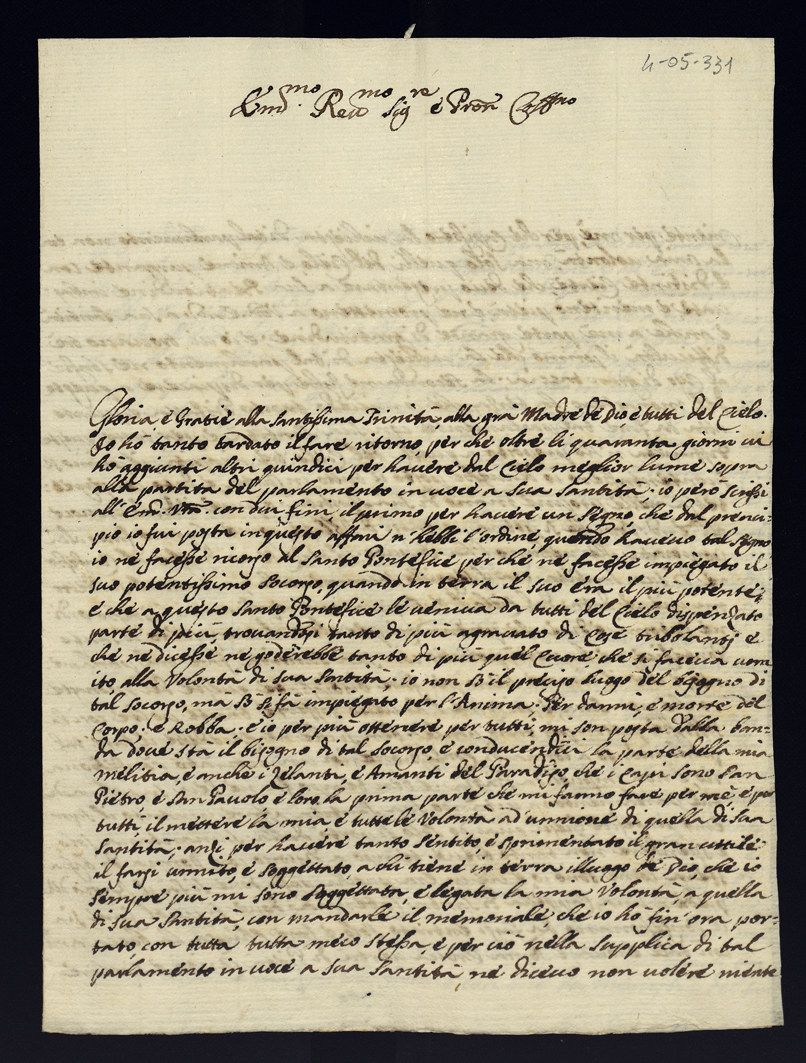 4-05-331
Em.mo Reu.mo Sig.re é Pron
Gloria é Gratié alla Santissima Trinità, alla grã Madre de Dio, é tutti del Cielo.
Io hò tanto tardato il fare ritorno, per che oltre li quaranta giorni ui
hò aggiunti altri quindici per hauere dal Cielo meglior lume sopra
alla partita del parlamento in uoce a sua Santità. io però scrissi
all'Em. con dui fini il primo per hauere un segno, che dal princi-
pio io fui posta in questo affari n'hebbi l'ordine, quando haueuo tal segno
io ne facesse ricorso al Santo Pontefice per che ne facesse impiegato il
suo potentissimo socorso, quando in terra il suo era il più potente;
é che a questo Santo Pontefice le ueniua da tutti del Cielo dispenzato
parte di più, trouandosi tanto di più agrauato di cose turbolanti é
che ne dicesse ne goderebbe tanto di più quel Cuore che si faceua unni
ito alla Volontà di sua Santità. io non sò il preciso luogo del bisogno di
tal socorso, ma sò si fà impiegato per l'Anima. Per danni, é morte del
Corpo. é Robba. é io per più ottenere per tutti, mi son posta dalla ban-
da doue stà il bisogno di tal socorso, é conducendoci la parte della mia
melitia, é anche i Zelanti, é Amanti del Paradiso, che i Capi sono San
Pietro, é San Pauolo é loro la prima parte che mi fanno fare per mé, é per
tutti, il mettere la mia, é tutte le Volontà ad'unnione di quella di sua
Santità. anzi per hauere tanto sentito, é sprimentato il gran uttile
il farsi unnito, é soggettato, a chi tiene in terra il luogo de Dio, che io
sempre più mi sono soggettata, é legata la mia Volontà, a quella
di sua Santità, con mandarle il memoriale, che io hò fin'ora por-
tato, con tutta tutta meco stessa, é per ciò nella supplica di tal
parlamento in uoce a sua Santità, ne diceuo non uolere niente